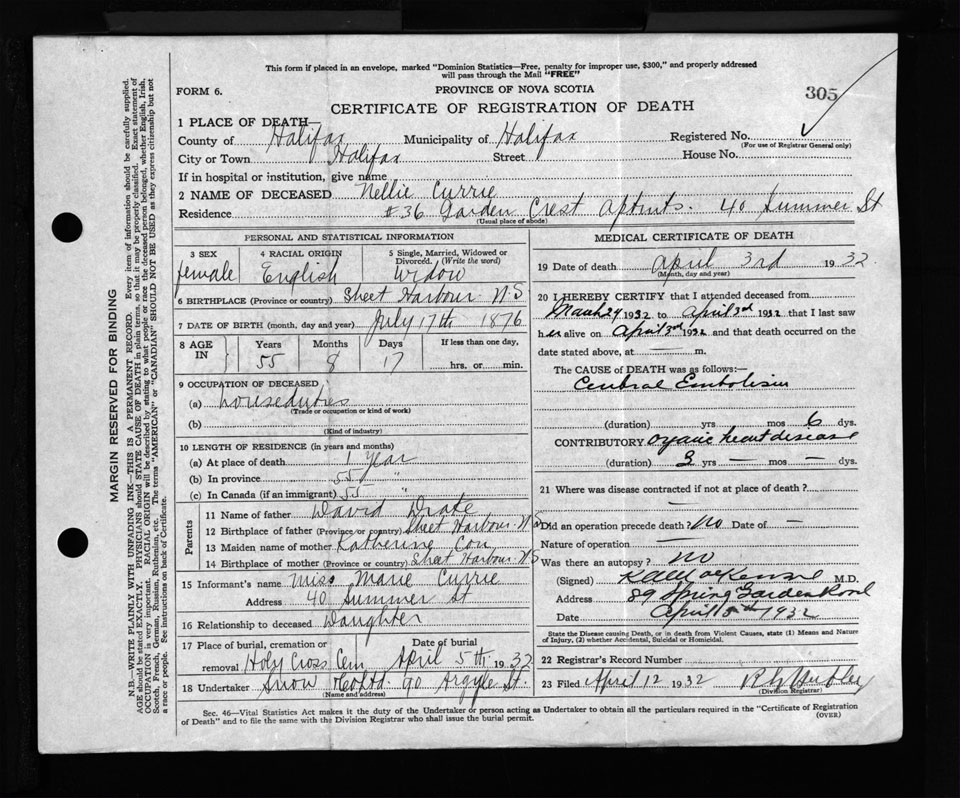 This form if placed in an envelope, marked "Dominion Statistics—Free, penalty for improper use, $300," and properly addressed
will pass through the Mail "FREE"
FORM 6.
PROVINCE OF NOVA SCOTIA
305
CERTIFICATE OF REGISTRATION OF DEATH
1 PLACE OF DEATH—
County of Halifax Municipality of Halifax Registered No.
(For use of Registrar General only)
City or Town Halifax Street House No.
If in hospital or institution, give name
2 NAME OF DECEASED Nellie Currie
Residence #36 Garden Crest Aptmts. 40 Summer St
(Usual place of abode)
PERSONAL AND STATISTICAL INFORMATION
3 SEX 4 RACIAL ORIGIN 5 Single, Married, Widowed or
Divorced. (Write the word)
female English Widow
6 BIRTHPLACE (Province or country) Sheet Harbour N.S
7 DATE OF BIRTH (month, day and year) July 17th 1876
8 AGE IN Years Months Days If less than one day,
55 8 17 hrs. or min.
9 OCCUPATION OF DECEASED
(a) houseduties
(Trade or occupation or kind of work)
(b)
(Kind of industry)
10 LENGTH OF RESIDENCE (in years and months)
(a) At place of death 1 Year
(b) In province 55 "
(c) In Canada (if an immigrant) 55 "
Parents
11 Name of father David Drake
12 Birthplace of father (Province or country) Sheet Harbour. N S
13 Maiden name of mother Katherine
14 Birthplace of mother (Province or country) Sheet Harbour N S
15 Informant's name Miss Marie Currie
Address 40 Summer St
16 Relationship to deceased Daughter
17 Place of burial, cremation or Date of burial
removal Holy Cross Cem April 5th 1932
18 Undertaker Snow & Co Ltd. 90 Argyle St.
(Name and address)
MEDICAL CERTIFICATE OF DEATH
19 Date of death April 3rd 1932
(Month, day and year)
20 I HEREBY CERTIFY that I attended deceased from
March 29 1932 to April 3rd 1932 that I last saw
her alive on April 3rd 1932 and that death occurred on the
date stated above, at — m.
The CAUSE of DEATH was as follows:—
Cerebral Embolism
(duration) yrs mos 6 dys.
CONTRIBUTORY Organic heart disease
(duration) 3 yrs — mos — dys.
21 Where was disease contracted if not at place of death?
—
Did an operation precede death? No Date of —
Nature of operation —
Was there an autopsy? no
(Signed) M.D.
Address 89 Spring Garden Road
Date April 5th 1932
State the Disease causing Death, or in death from Violent Causes, state (1) Means and Nature
of Injury, (2) whether Accidental, Suicidal or Homicidal.
22 Registrar's Record Number
23 Filed April 12 1932
(Division Registrar)
Sec. 46—Vital Statistics Act makes it the duty of the Undertaker or person acting as Undertaker to obtain all the particulars required in the "Certificate of Registration
of Death" and to file the same with the Division Registrar who shall issue the burial permit.
(OVER)
MARGIN RESERVED FOR BINDING
N.B.—WRITE PLAINLY WITH UNFADING INK—THIS IS A PERMANENT RECORD. Every item of information should be carefully supplied.
AGE should be stated EXACTLY. PHYSICIANS should STATE CAUSE OF DEATH in plain terms, so that it may be properly classified. Exact statement of
OCCUPATION is very important. RACIAL ORIGIN will be described by stating to what people or race the deceased person belonged, whether English, Irish,
Scotch, French, German, Russian, Ruthenian, etc. The terms "AMERICAN" or "CANADIAN" SHOULD NOT BE USED as they express citizenship but not
a race or people. See instructions on back of Certificate.